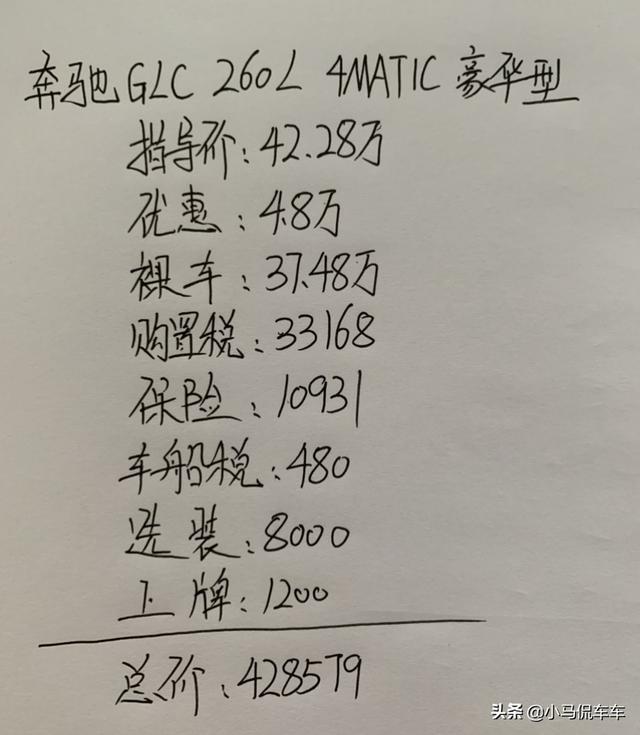 奔驰GLC 260L 4MATIC 豪华型
指导价:42.28万
优惠:4.8万
裸车:37.48万
购置税:33168
保险:10931
车船税:480
选装:8000
上牌:1200
总价:428579
头条 @小马侃车车